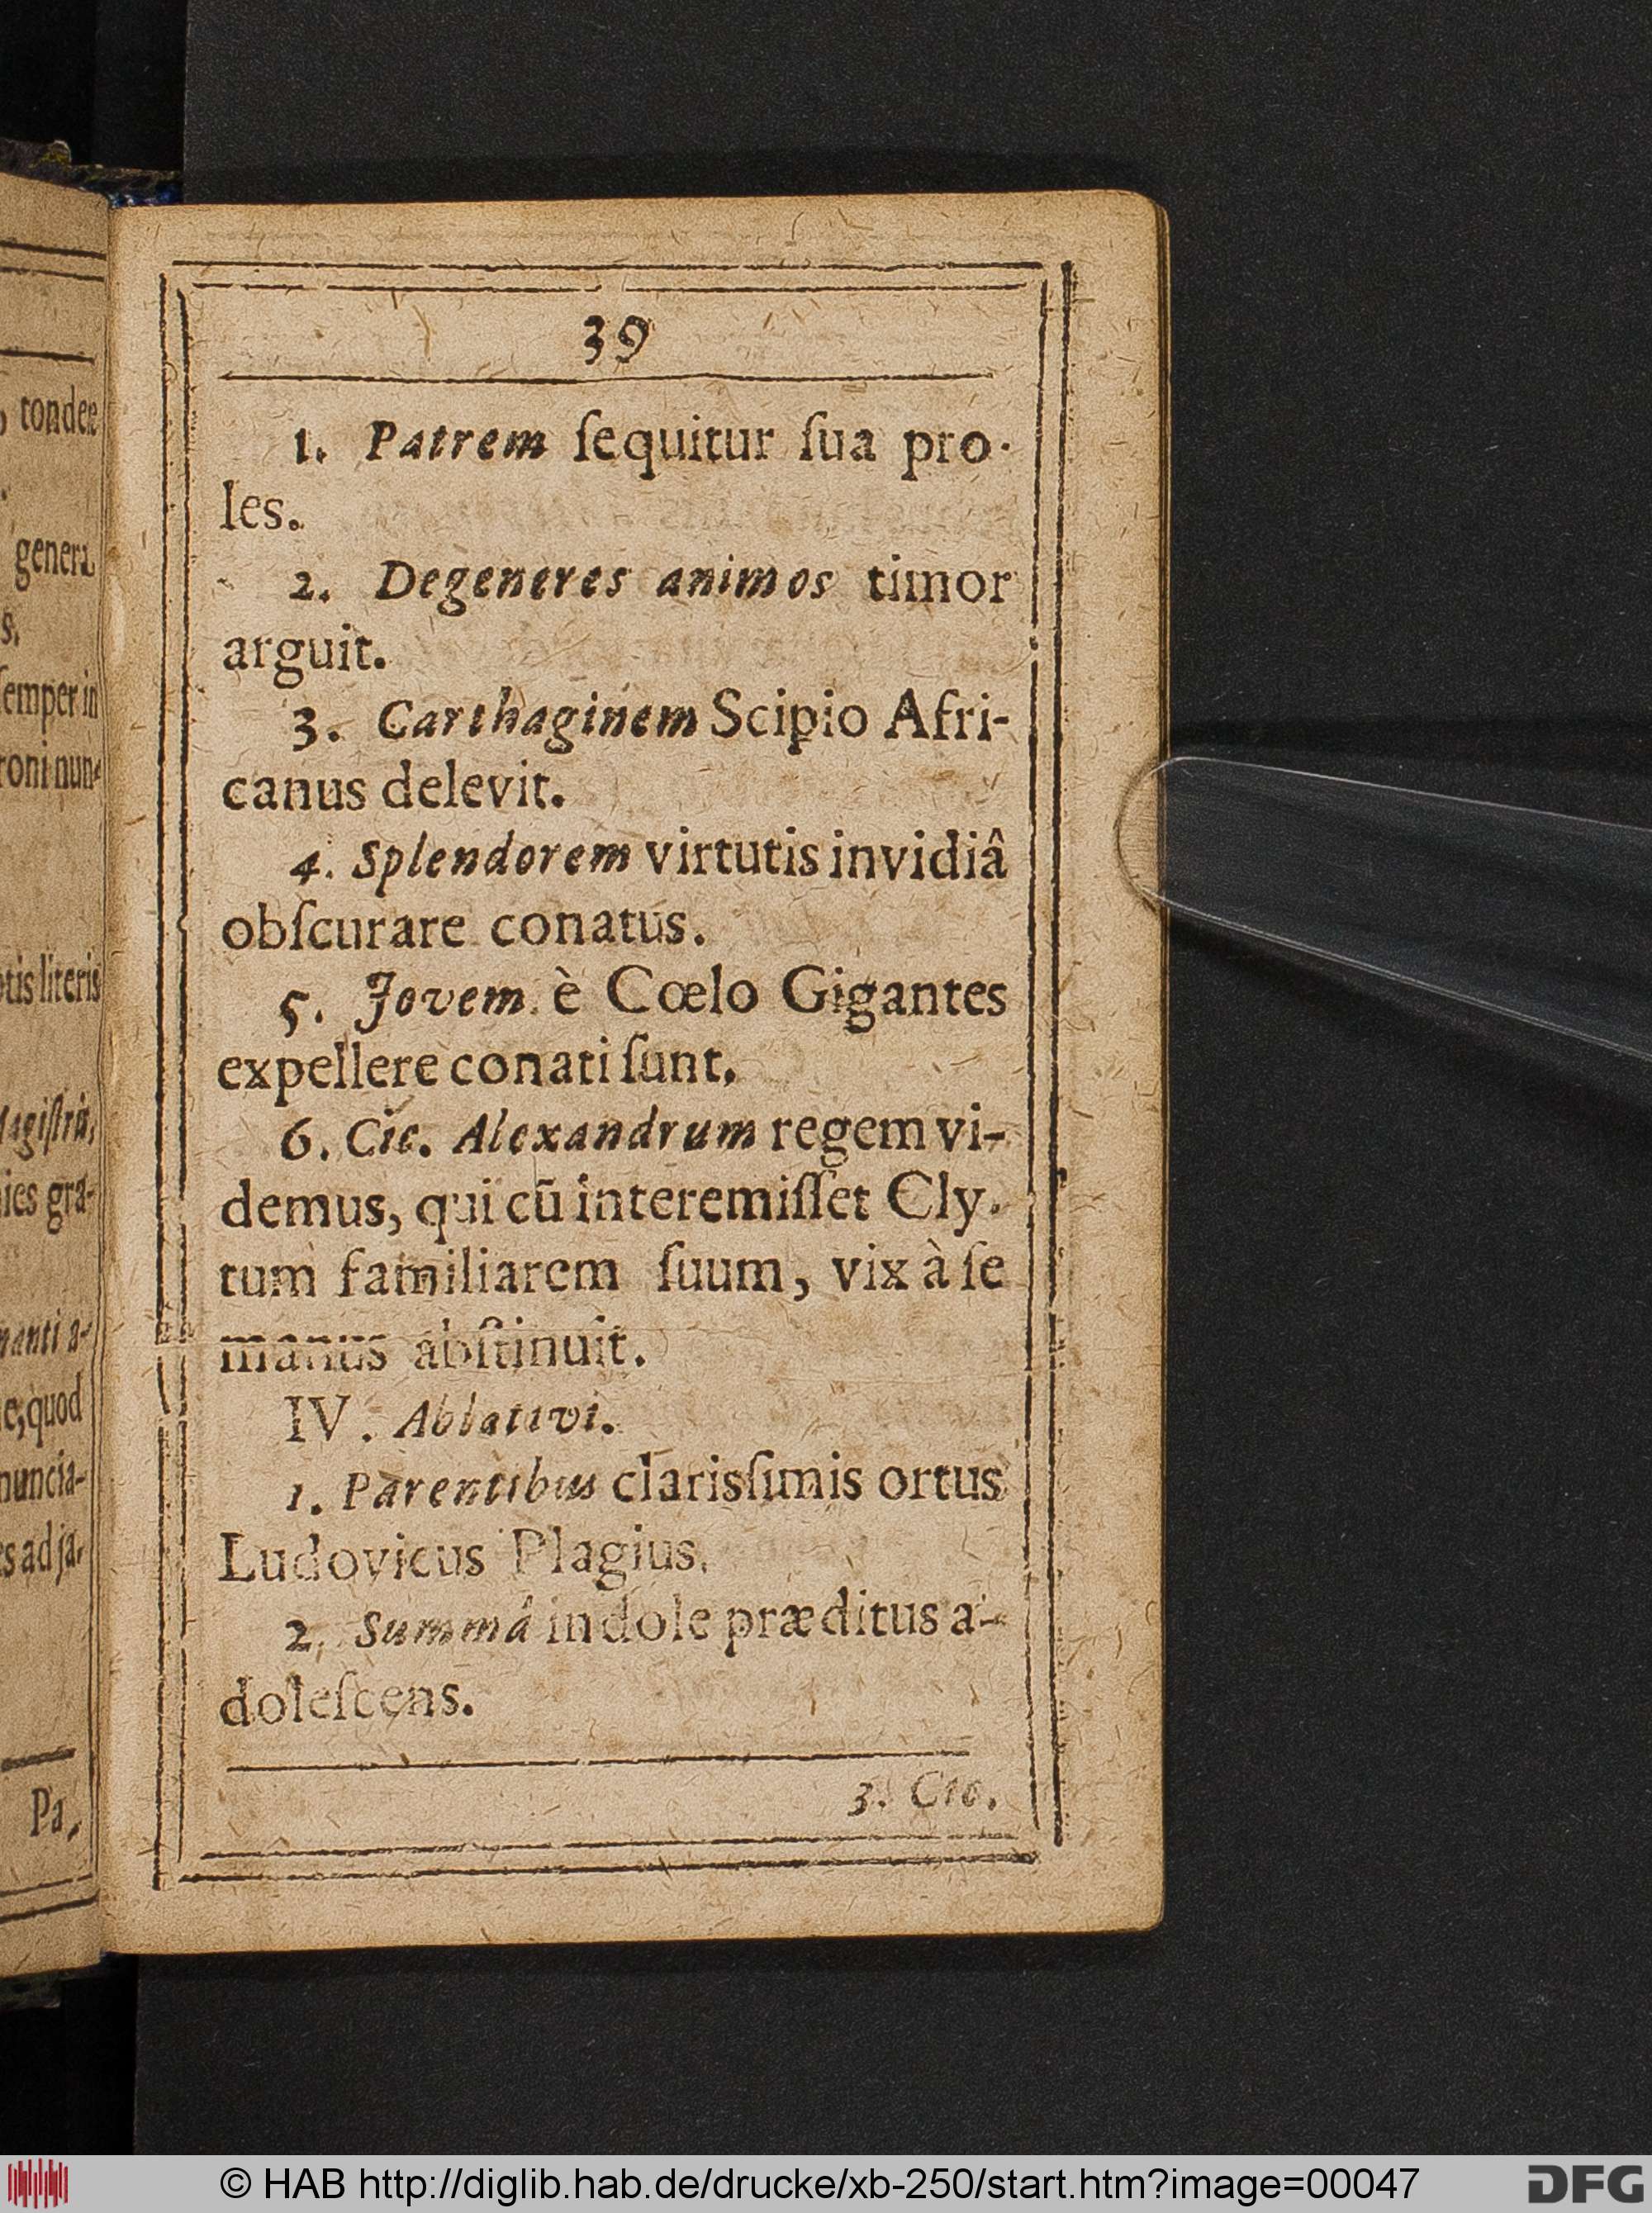 39
1. Patrem ſequitur ſua pro-
les.
2. Degeneres animos timor
arguit.
3. Carthaginem Scipio Afri-
canus delevit.
4. Splendorem virtutis invidiâ
obſcurare conatus.
5. Jovem è Cœlo Gigantes
expellere conati ſunt.
6. Cic. Alexandrum regem vi-
demus, qui cū interemiſſet Cly-
tum familiarem ſuum, vix à ſe
manus abſtinuit.
IV. Ablativi.
1. Parentibus clarisſimis ortus
Ludovicus Plagius.
2. Summâ indole præditus a-
doleſcens.
3. Cic.
tondere
genera
s.
ſemper in
roni nun-
ptis literis
Magiſtris,
ies gra-
manti a-
e, quod
nuncia-
s ad ja-
Pa-
© HAB http://diglib.hab.de/drucke/xb-250/start.htm?image=00047
DFG